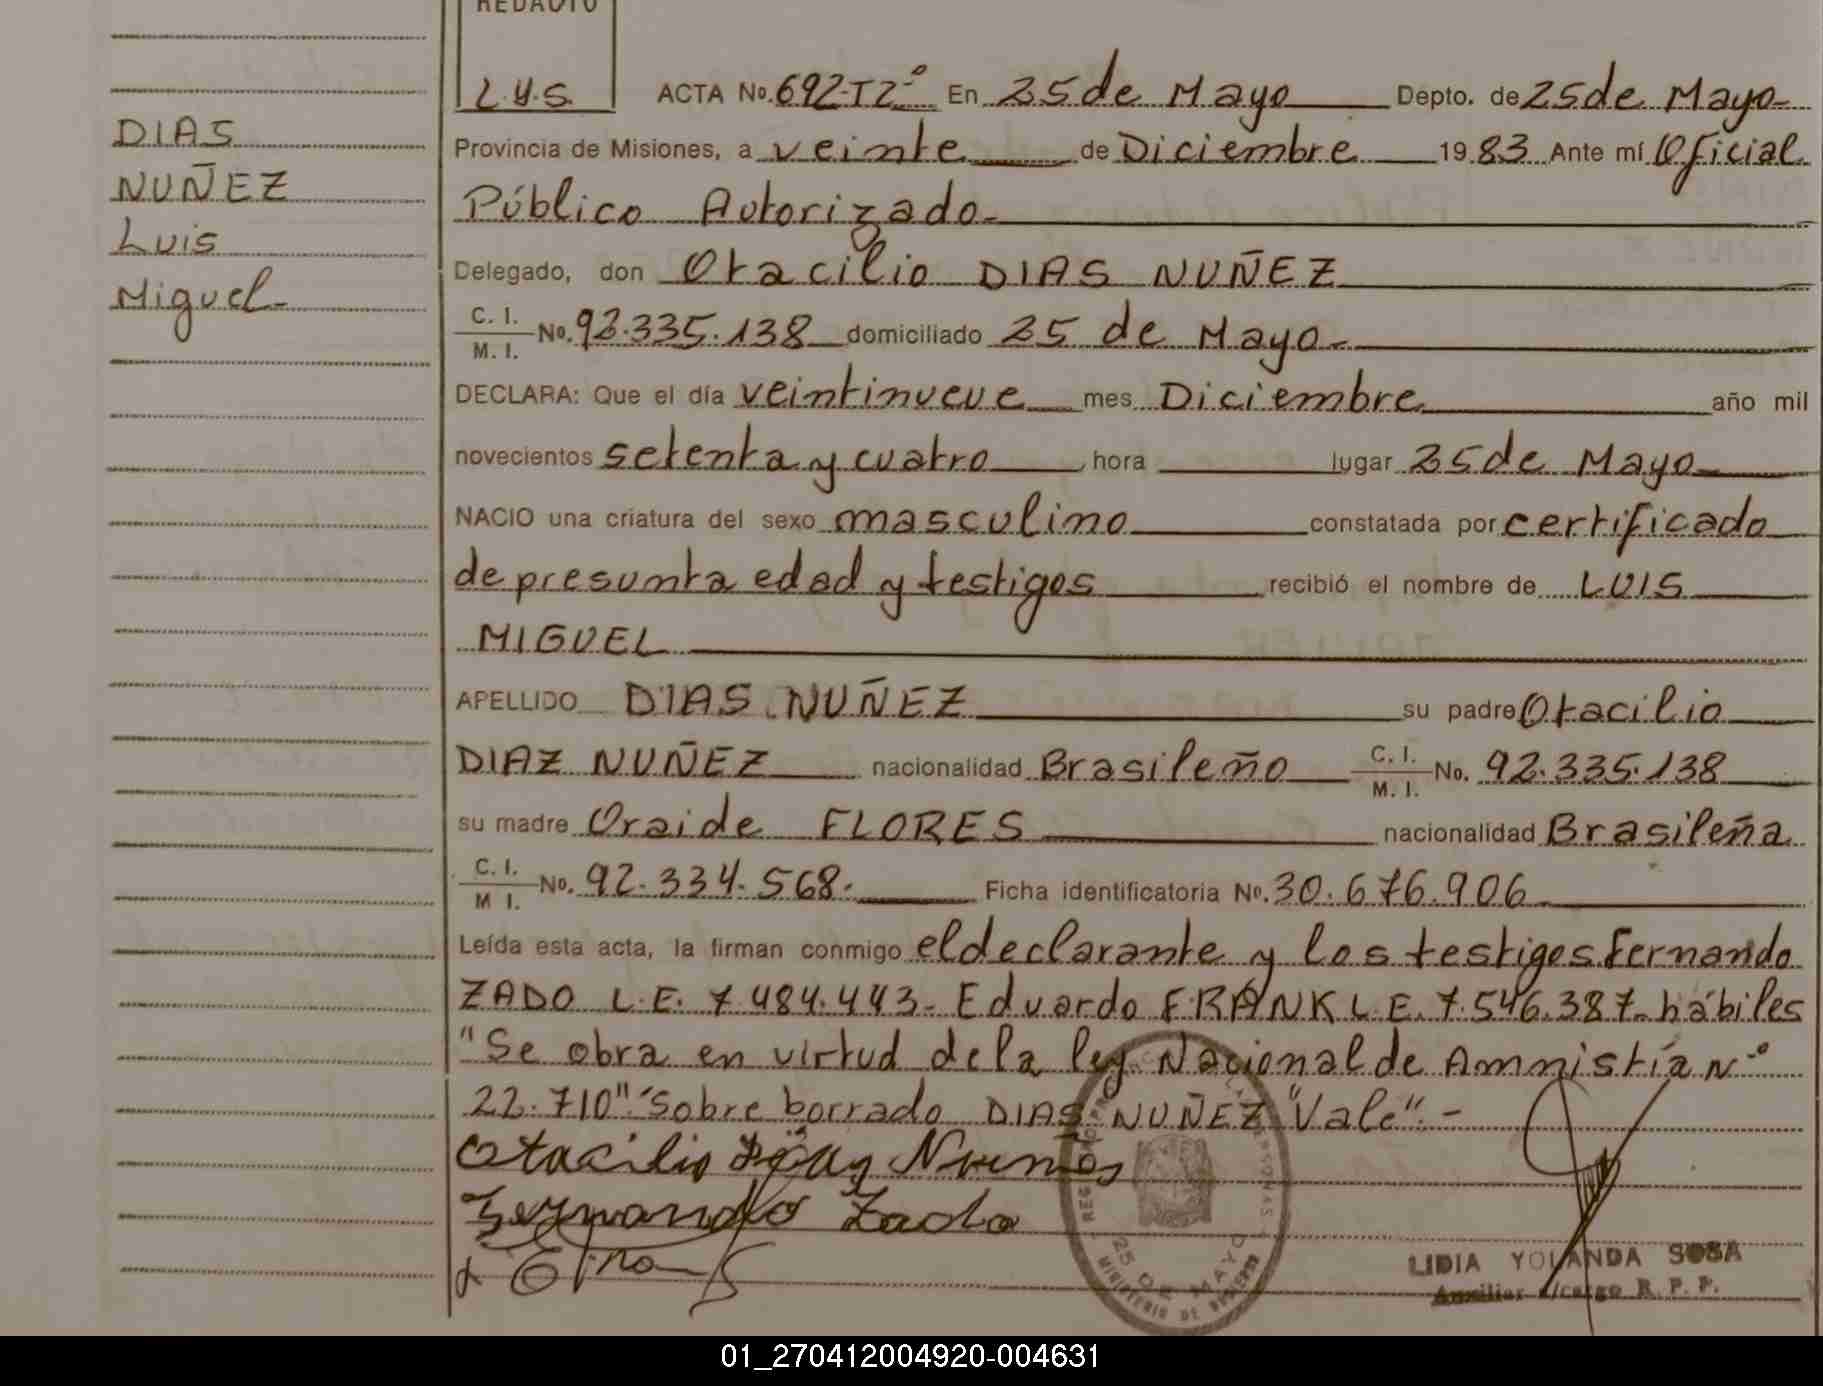 REDACTO
L.Y.S.
DIAS
NUÑEZ
Luis
Miguel-
ACTA No. 692-T2º En 25 de Mayo Depto. de 25 de Mayo-
Provincia de Misiones, a veinte de Diciembre 19 83 Ante mí Oficial
Público Autorizado-
Delegado, don Otacilio DIAS NUÑEZ
C. I.
M. I. No. 92.335.138 domiciliado 25 de Mayo-
DECLARA: Que el día veintinueve mes Diciembre año mil
novecientos setenta y cuatro hora lugar 25 de Mayo
NACIO una criatura del sexo masculino constatada por certificado
de presunta edad y testigos recibió el nombre de LUIS
MIGUEL
APELLIDO DIAS NUÑEZ su padre Otacilio
DIAZ NUÑEZ nacionalidad Brasileño C. I.
M. I. No. 92.335.138
su madre Oraide FLORES nacionalidad Brasileña
C. I.
M I. No. 92.334.568. Ficha identificatoria No. 30.676.906
Leída esta acta, la firman conmigo el declarante y los testigos Fernando
ZADO L.E. 7.484.443- Eduardo FRANK L.E. 7.546.387- hábiles
"Se obra en virtud de la ley Nacional de Amnistía Nº
22.710" "Sobre borrado DIAS NUÑEZ "Vale".-
Otacilio Nunes
Fernando Zado
25 DE MAYO
MINISTERIO DE GOBIERNO
LIDIA YOLANDA SOSA
Auxiliar a/cargo R. P. P.
01_270412004920-004631